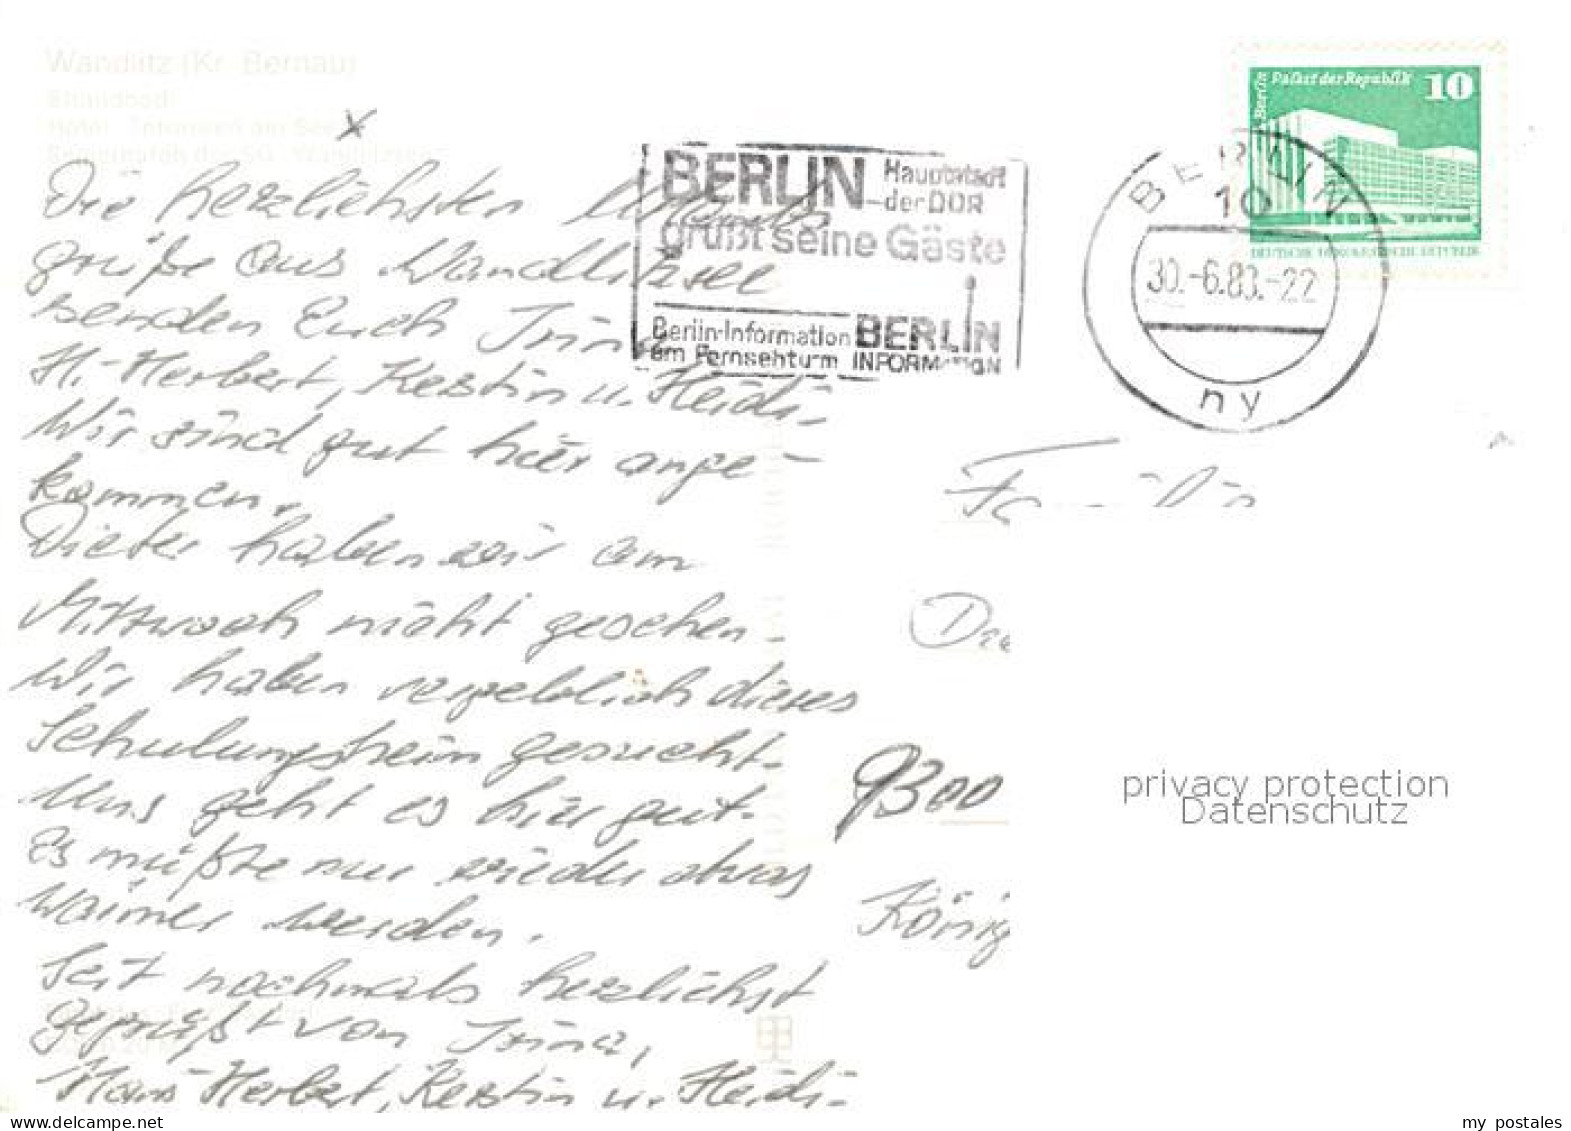 Wandlitz (Kr. Bernau)
Strandbad
Hotel
X
Die herzlichsten Urlaubs
grüße aus Wandlitzsee
senden Euch Irina
H.-Herbert, Kerstin u. Heidi.
Wir sind gut hier ange-
kommen.
Dieter haben wir am
Mittwoch nicht gesehen.
Wir haben vergeblich dieses
Schulungsheim gesucht.
Uns geht es hier gut.
Es müßte nur wieder etwas
wärmer werden.
Seit nochmals herzlichst
gegrüßt von Irina,
Hans-Herbert, Kerstin u. Heidi.
BERLIN Hauptstadt
der DDR
grüßt seine Gäste
Berlin-Information BERLIN
am Fernsehturm INFORMATION
Berlin Palast der Republik 10
DEUTSCHE DEMOKRATISCHE REPUBLIK
BERLIN
10
30.-6.83.-22
ny
Familie
9300
König
privacy protection
Datenschutz
www.delcampe.net
my_postales